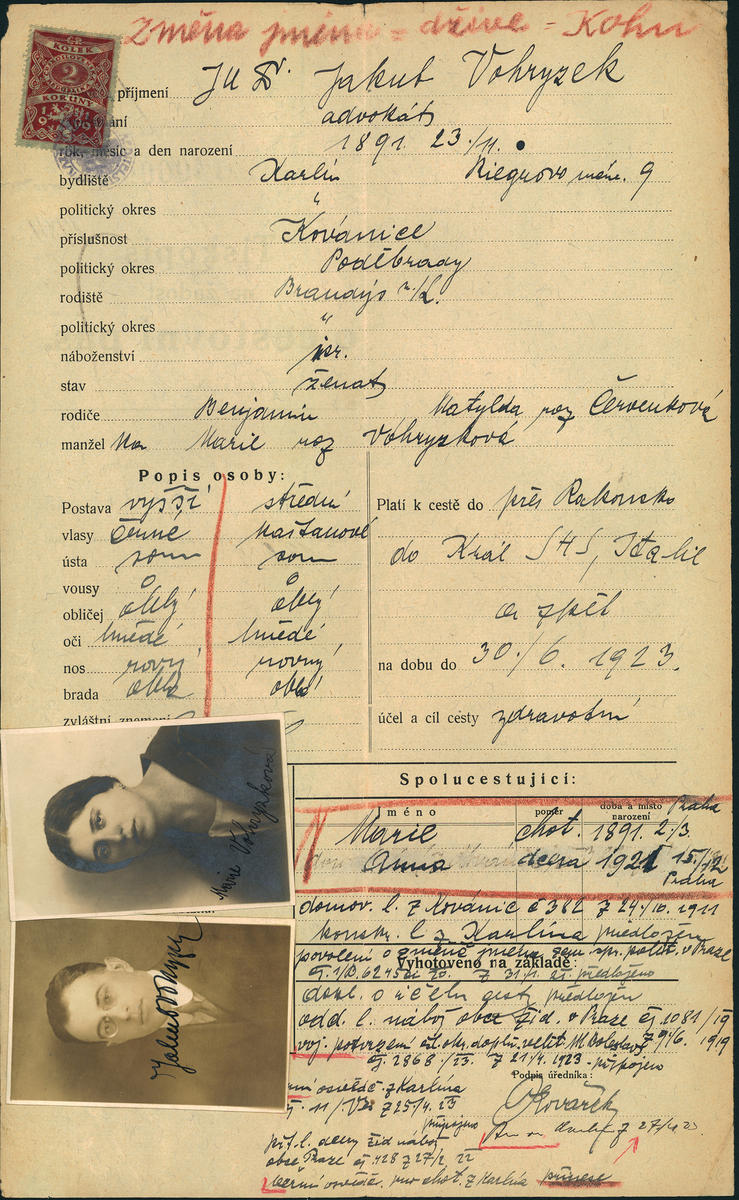 Změna jména = dříve = Kohn
KOLEK
2
KORUNY
příjmení JUDr. Jakub Vohryzek
advokát
rok, měsíc a den narození 1891. 23./11.
bydliště Karlín Riegrovo nám. 9
politický okres "
příslušnost Kovánice
politický okres Poděbrady
rodiště Brandýs n./L.
politický okres "
náboženství isr.
stav ženatý
rodiče Benjamin Matylda roz Červenková
manžel ka Marie roz Vohryzková
Popis osoby:
Postava vyšší střední
vlasy černé kaštanové
ústa soum soum
vousy 0 0
obličej oblý oblý
oči hnědé hnědé
nos rovný rovný
brada oblá oblá
zvláštní znamení
Platí k cestě do přes Rakousko
do Král SHS, Italie
a zpět
na dobu do 30./6. 1923.
účel a cíl cesty zdravotní
Marie Vohryzková
Spolucestující:
jméno poměr doba a místo narození
Marie choť. 1891. 2./3. Praha
Anna dcera 1921 15./12 Praha
domov. l. z Kovánic č 382 z 24./10. 1911
konskr. l z Karlína předložen
povolení o změně jména zem. spr. polit. v Praze
Vyhotoveno na základě:
z 31./1. 22. předloženo
dokl. o účelu cesty předložen
odd. l. nábož obce žid. v Praze čj 1081/19
voj. potvrzení okr. doplň. velit. Ml Boleslav z 9./6. 1919
čj. 2868/23. z 21/4. 1923 - připojeno
Podpis úředníka:
Kovařík
osvědč. z Karlína
z 25/4. 23
připojeno
z 27/4 23
obce Praze čj. 428 z 27/2. 22
osvědč. choť. z Karlína